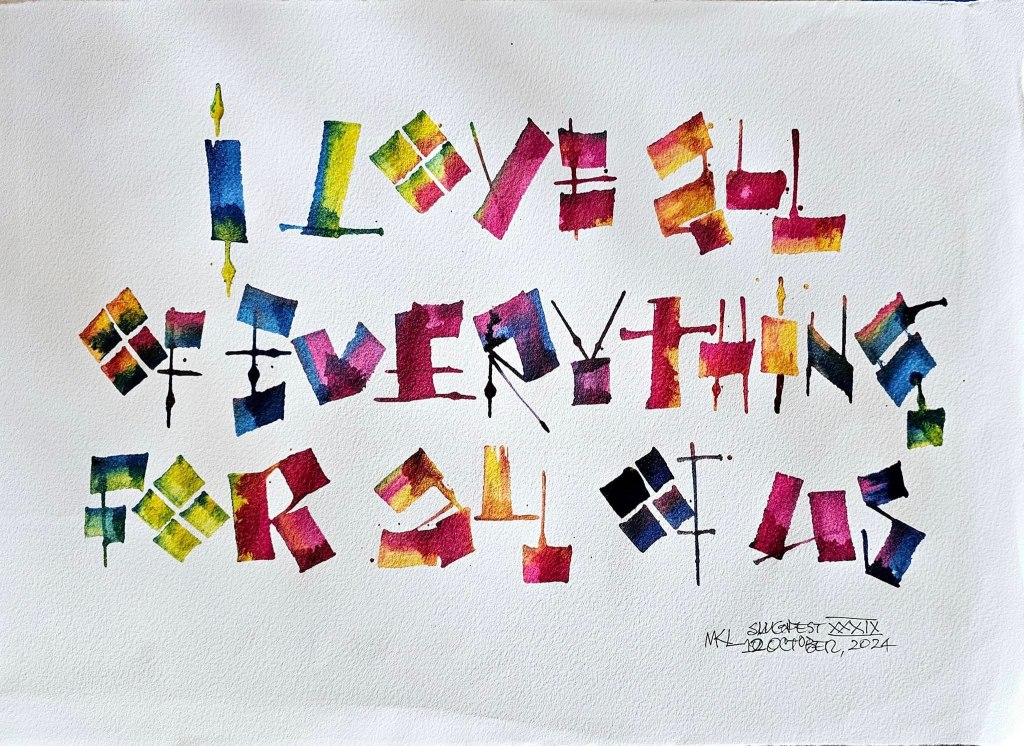 I LOVE ALL
OF EVERYTHING
FOR ALL OF US
SLUGFEST XXXIX
MKL 12 OCTOBER, 2024